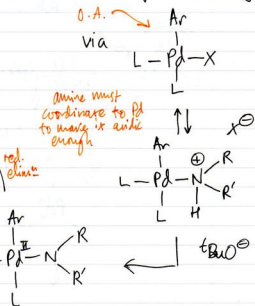 O.A.
via
Ar
L – Pd – X
L
amine must
coordinate to Pd
to make it acidic
enough
X⊖
Ar
⊕ R
L – Pd – N
R'
L H
red.
elimⁿ
ᵗBuO⊖
Ar
II R
Pd – N
R'
L